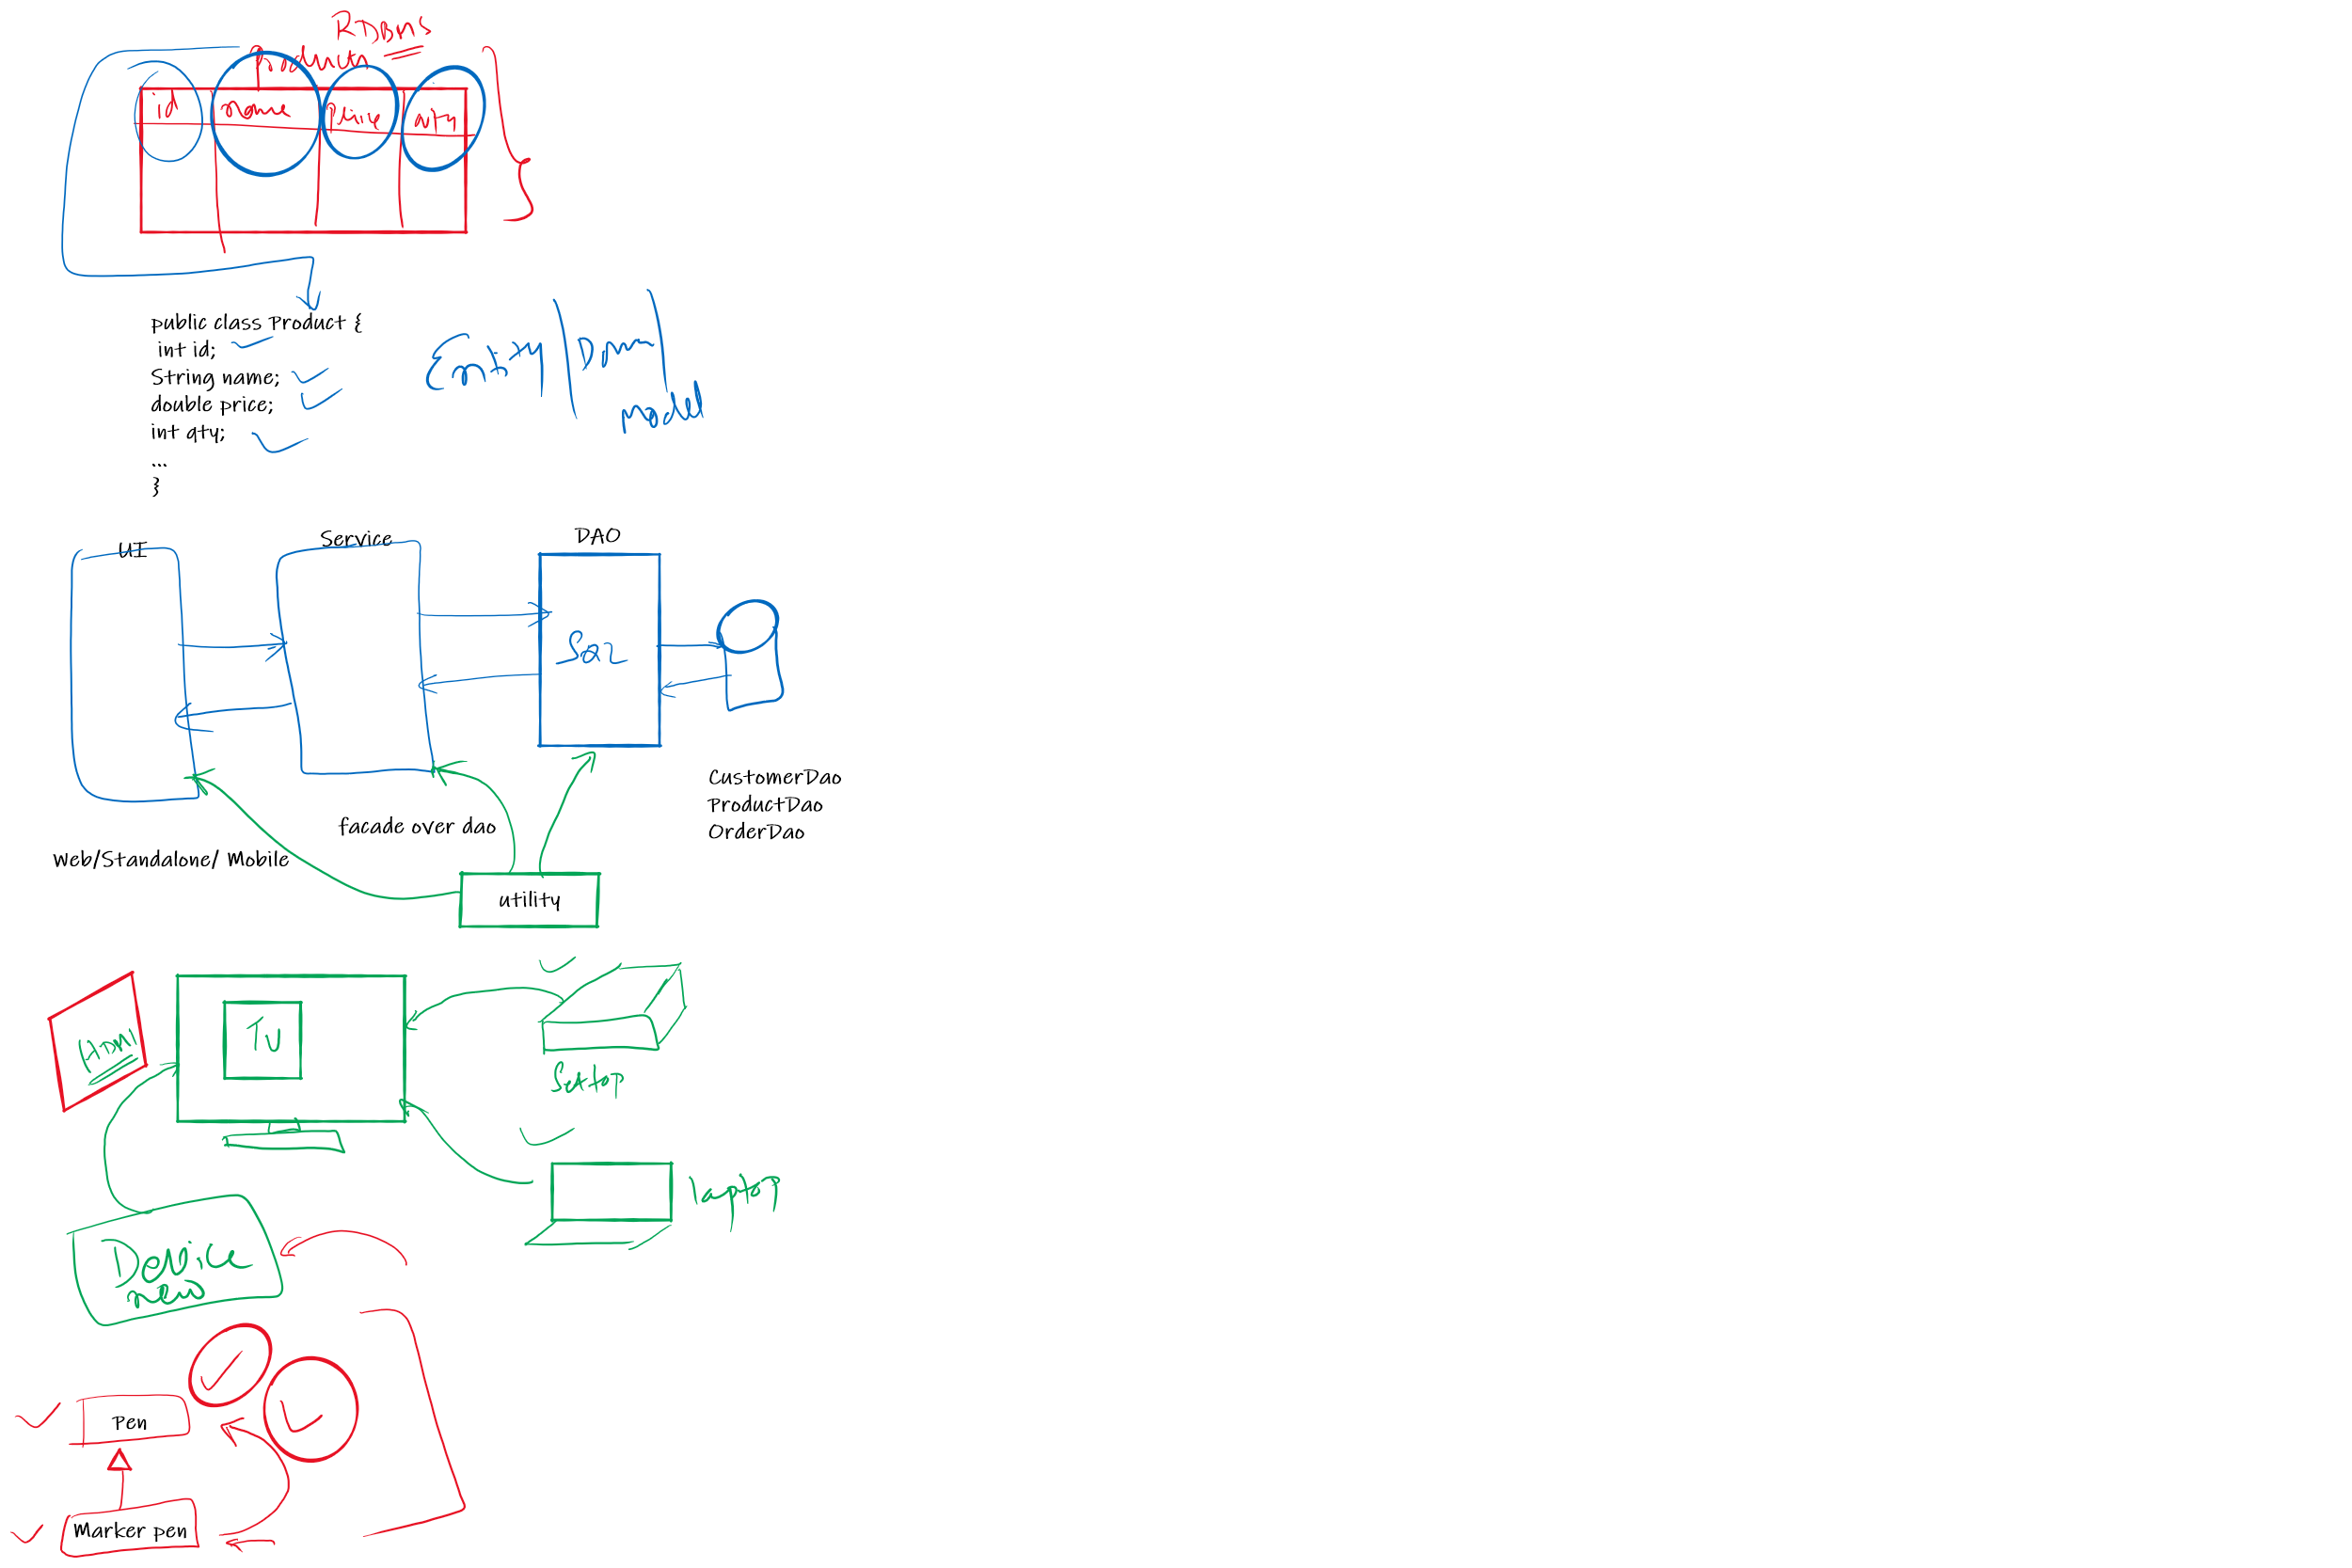 RDBMS
products
id name price qty
public class Product {
int id;
String name;
double price;
int qty;
...
}
Entity/Dom/
model
UI
Service
DAO
SQL
CustomerDao
ProductDao
OrderDao
facade over dao
Web/Standalone/ Mobile
utility
HDMI
TV
Settop
laptop
Device
new
Pen
Marker pen